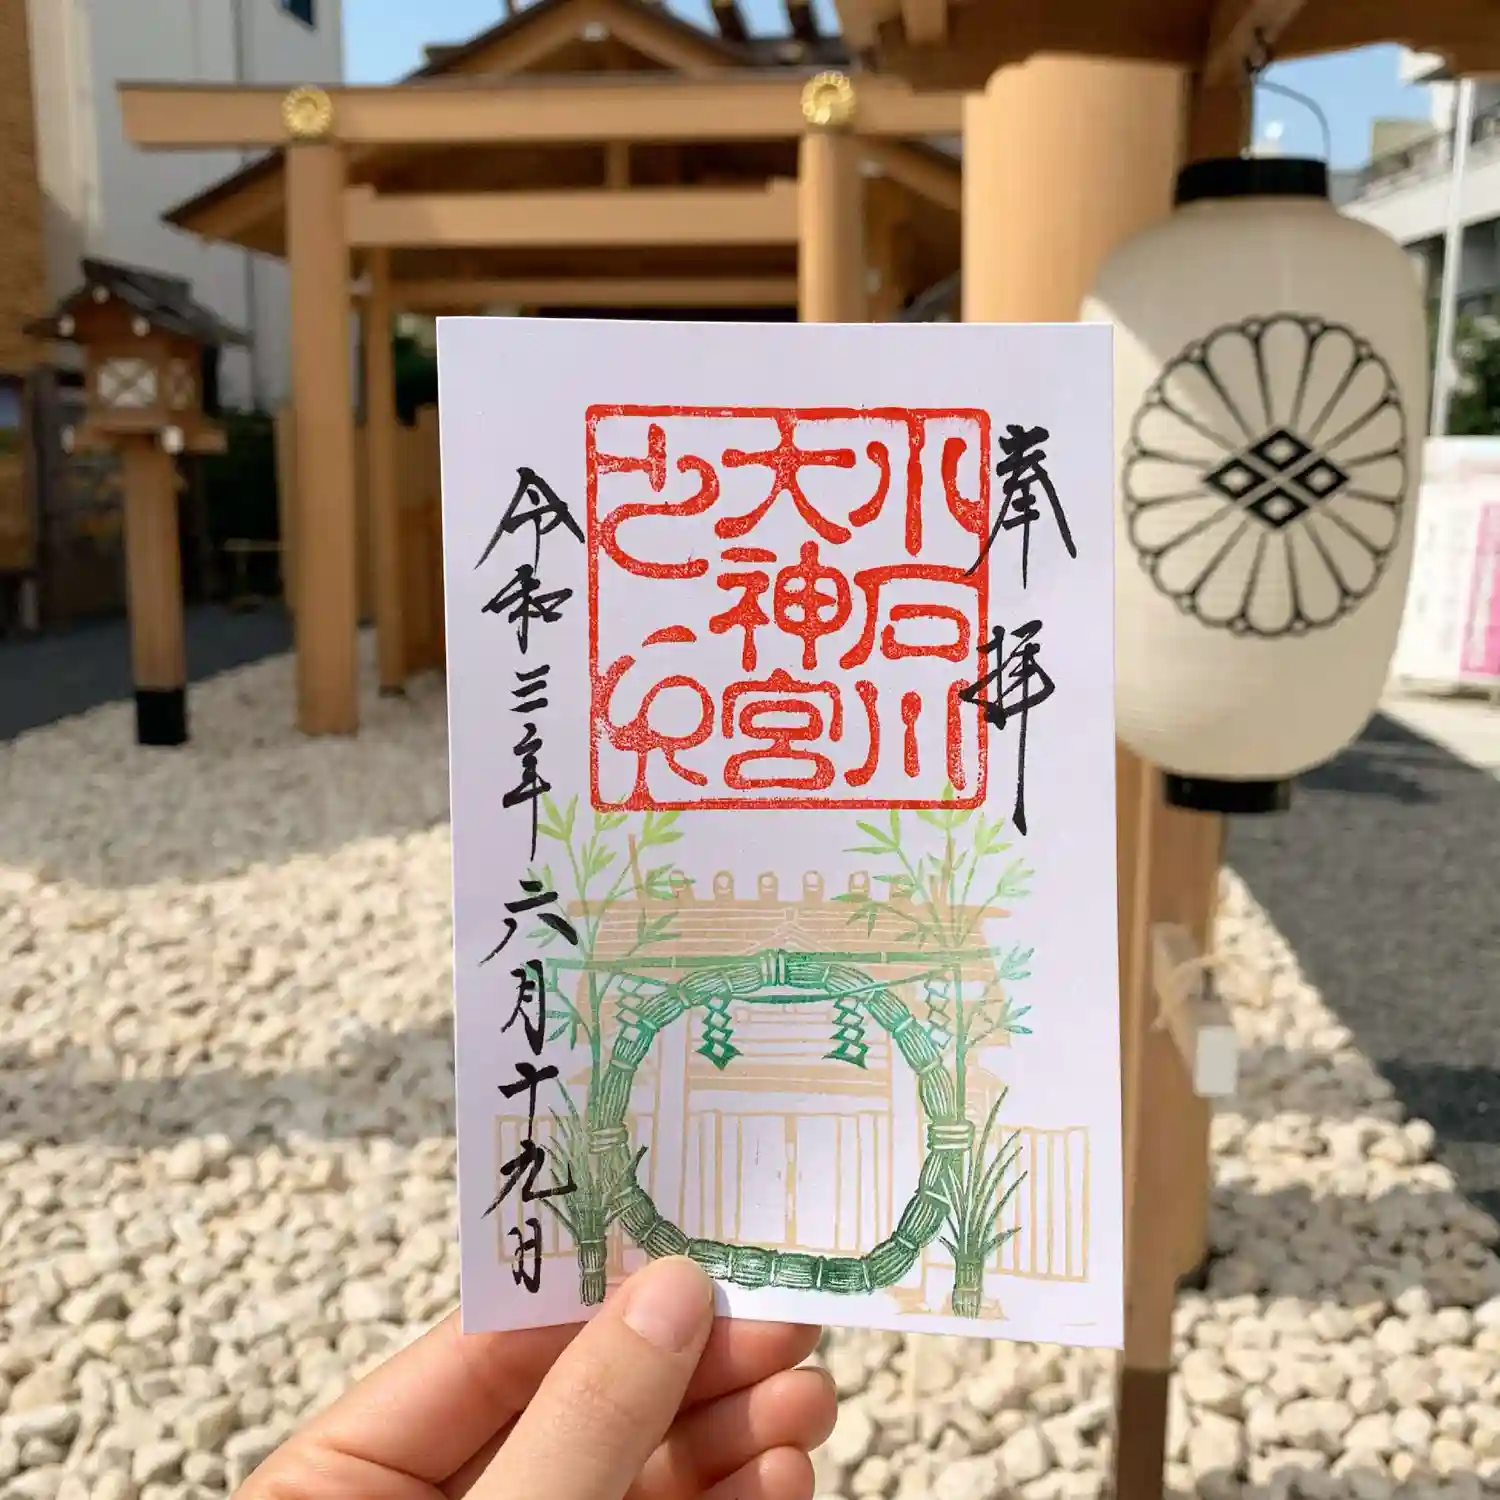 奉拝
小石川
大神宮
之印
令和三年六月十九日